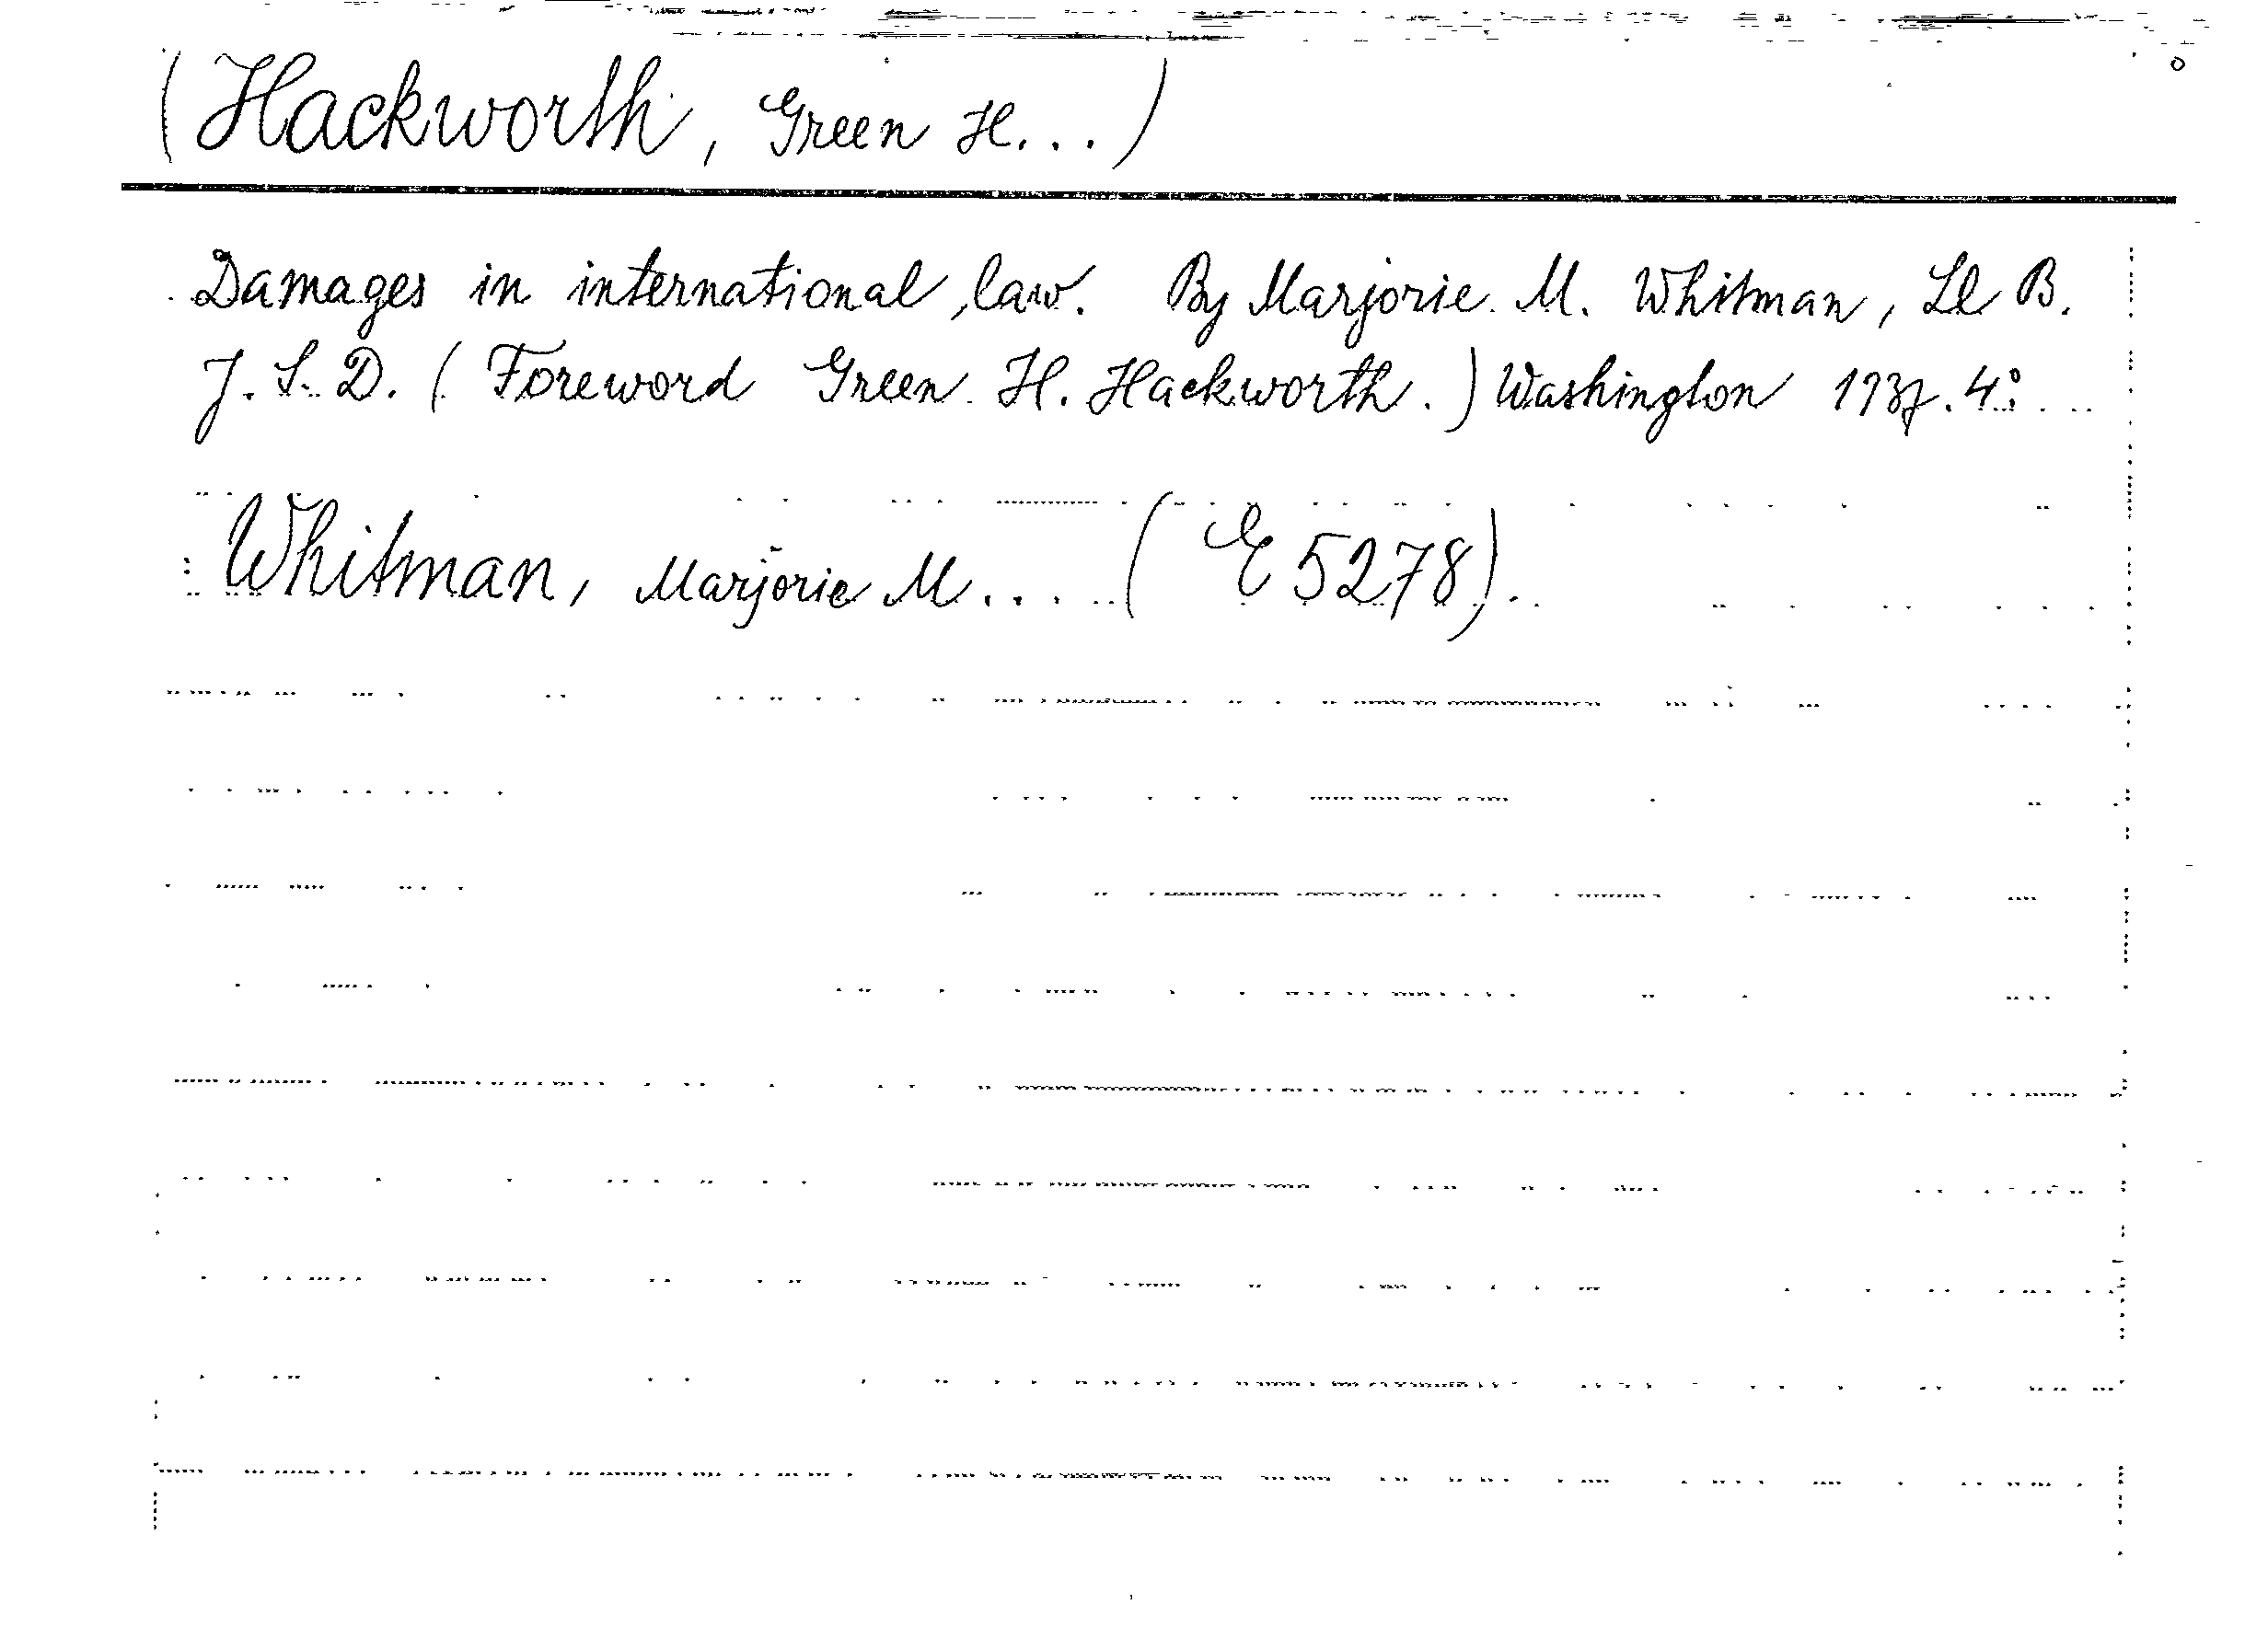 (Hackworth, Green H...)
Damages in international law. By Marjorie M. Whitman, Ll B.
J. S. D. (Foreword Green H. Hackworth.) Washington 1937. 4°.
Whitman, Marjorie M.... (E 5278).